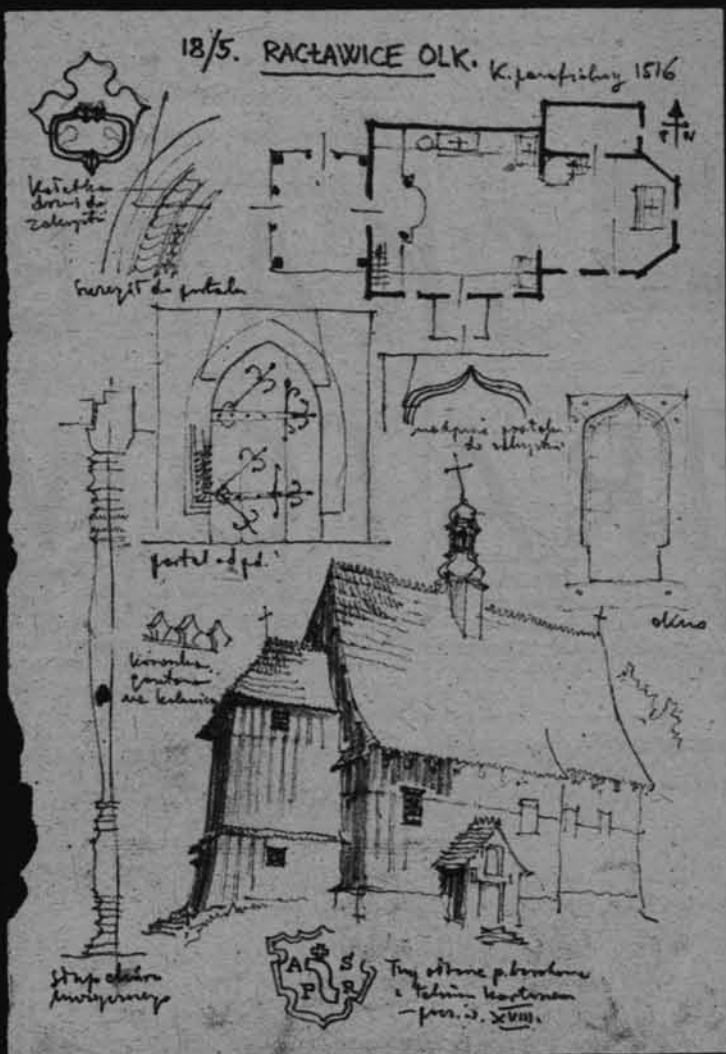 18/5. RACŁAWICE OLK.
K. parafialny 1516
Kołatka
drzwi do
zakrystii
portalu
nadproże portalu
do zakrystii
portal od pd.
okno
koronka
gontowa
na kalenicy
Słup chóru
muzycznego
A S
P R
Trzy ołtarze p.
z takim kartuszem
XVIII.